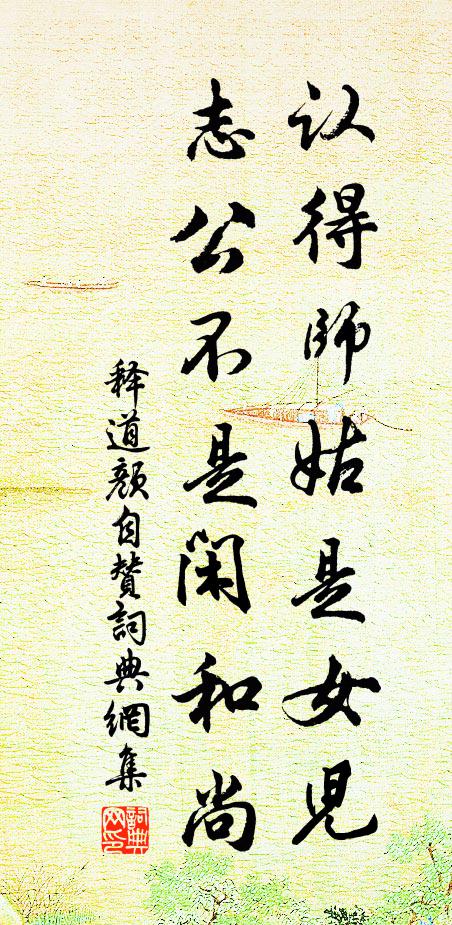 认得師姑是女児
志公不是闲和尚
释道颜自赞詞典網集
詞典网印